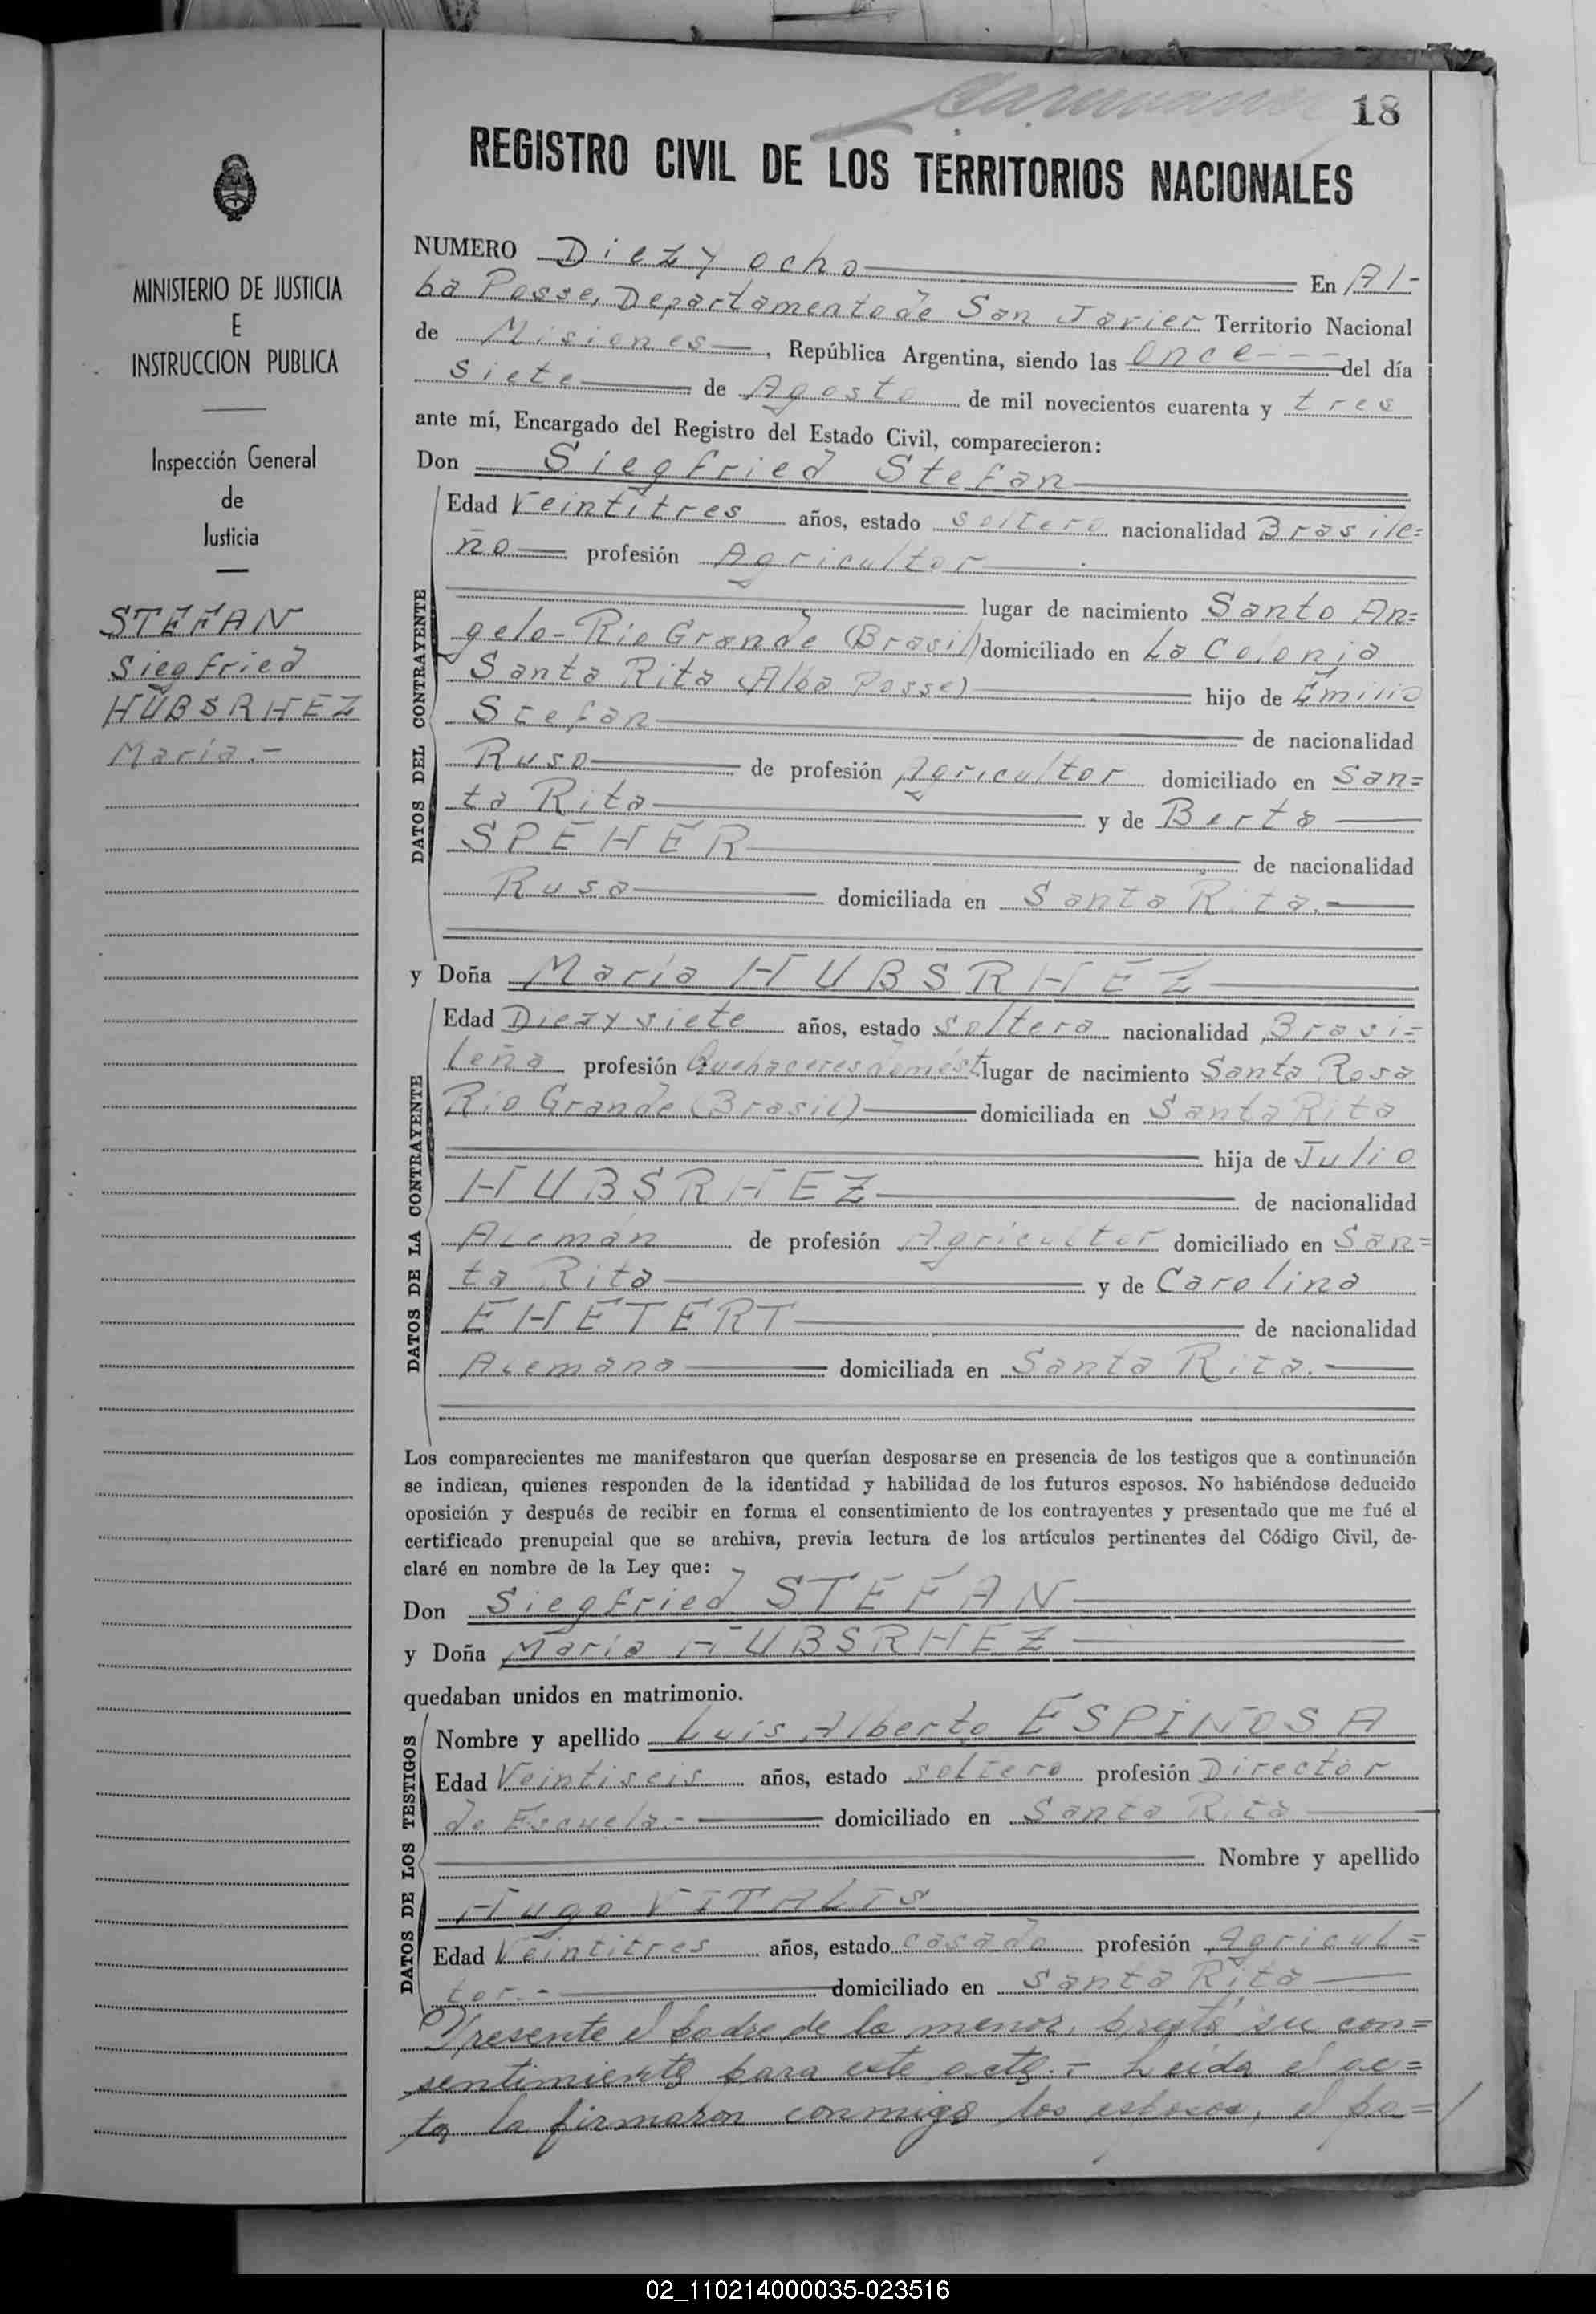 18
REGISTRO CIVIL DE LOS TERRITORIOS NACIONALES
MINISTERIO DE JUSTICIA
E
INSTRUCCION PUBLICA
Inspección General
de
Justicia
STEFAN
Siegfried
HÜBSRHEZ
María.-
NUMERO Diez y ocho En Al-
ba Posse, Departamento de San Javier Territorio Nacional
de Misiones, República Argentina, siendo las Once --- del día
siete de Agosto de mil novecientos cuarenta y tres
ante mí, Encargado del Registro del Estado Civil, comparecieron:
Don Siegfried Stefan
DATOS DEL CONTRAYENTE
Edad Veintitres años, estado soltero nacionalidad Brasile=
ño profesión Agricultor
lugar de nacimiento Santo An=
gelo - Rio Grande (Brasil) domiciliado en La Colonia
Santa Rita (Alba Posse) hijo de Emilio
Stefan de nacionalidad
Ruso de profesión Agricultor domiciliado en San=
ta Rita y de Berta
SPEHER de nacionalidad
Rusa domiciliada en Santa Rita.-
y Doña María HUBSRHEZ
DATOS DE LA CONTRAYENTE
Edad Diez y siete años, estado soltera nacionalidad Brasi=
leña profesión Quehaceres domést. lugar de nacimiento Santa Rosa
Rio Grande (Brasil) domiciliada en Santa Rita
hija de Julio
HUBSRHEZ de nacionalidad
Alemán de profesión Agricultor domiciliado en San=
ta Rita y de Carolina
EHETERT de nacionalidad
Alemana domiciliada en Santa Rita.-
Los comparecientes me manifestaron que querían desposarse en presencia de los testigos que a continuación
se indican, quienes responden de la identidad y habilidad de los futuros esposos. No habiéndose deducido
oposición y después de recibir en forma el consentimiento de los contrayentes y presentado que me fué el
certificado prenupcial que se archiva, previa lectura de los artículos pertinentes del Código Civil, de-
claré en nombre de la Ley que:
Don Siegfried STEFAN
y Doña María HUBSRHEZ
quedaban unidos en matrimonio.
DATOS DE LOS TESTIGOS
Nombre y apellido Luis Alberto ESPINOSA
Edad Veintiseis años, estado soltero profesión Director
de Escuela.- domiciliado en Santa Rita
Nombre y apellido
Hugo VITALIS
Edad Veintitres años, estado casado profesión Agricul=
tor.- domiciliado en Santa Rita
Presente el padre de la menor, prestó su con=
sentimiento para este acto.- Leida el ac=
ta la firmaron conmigo los esposos, el pa=
02_110214000035-023516